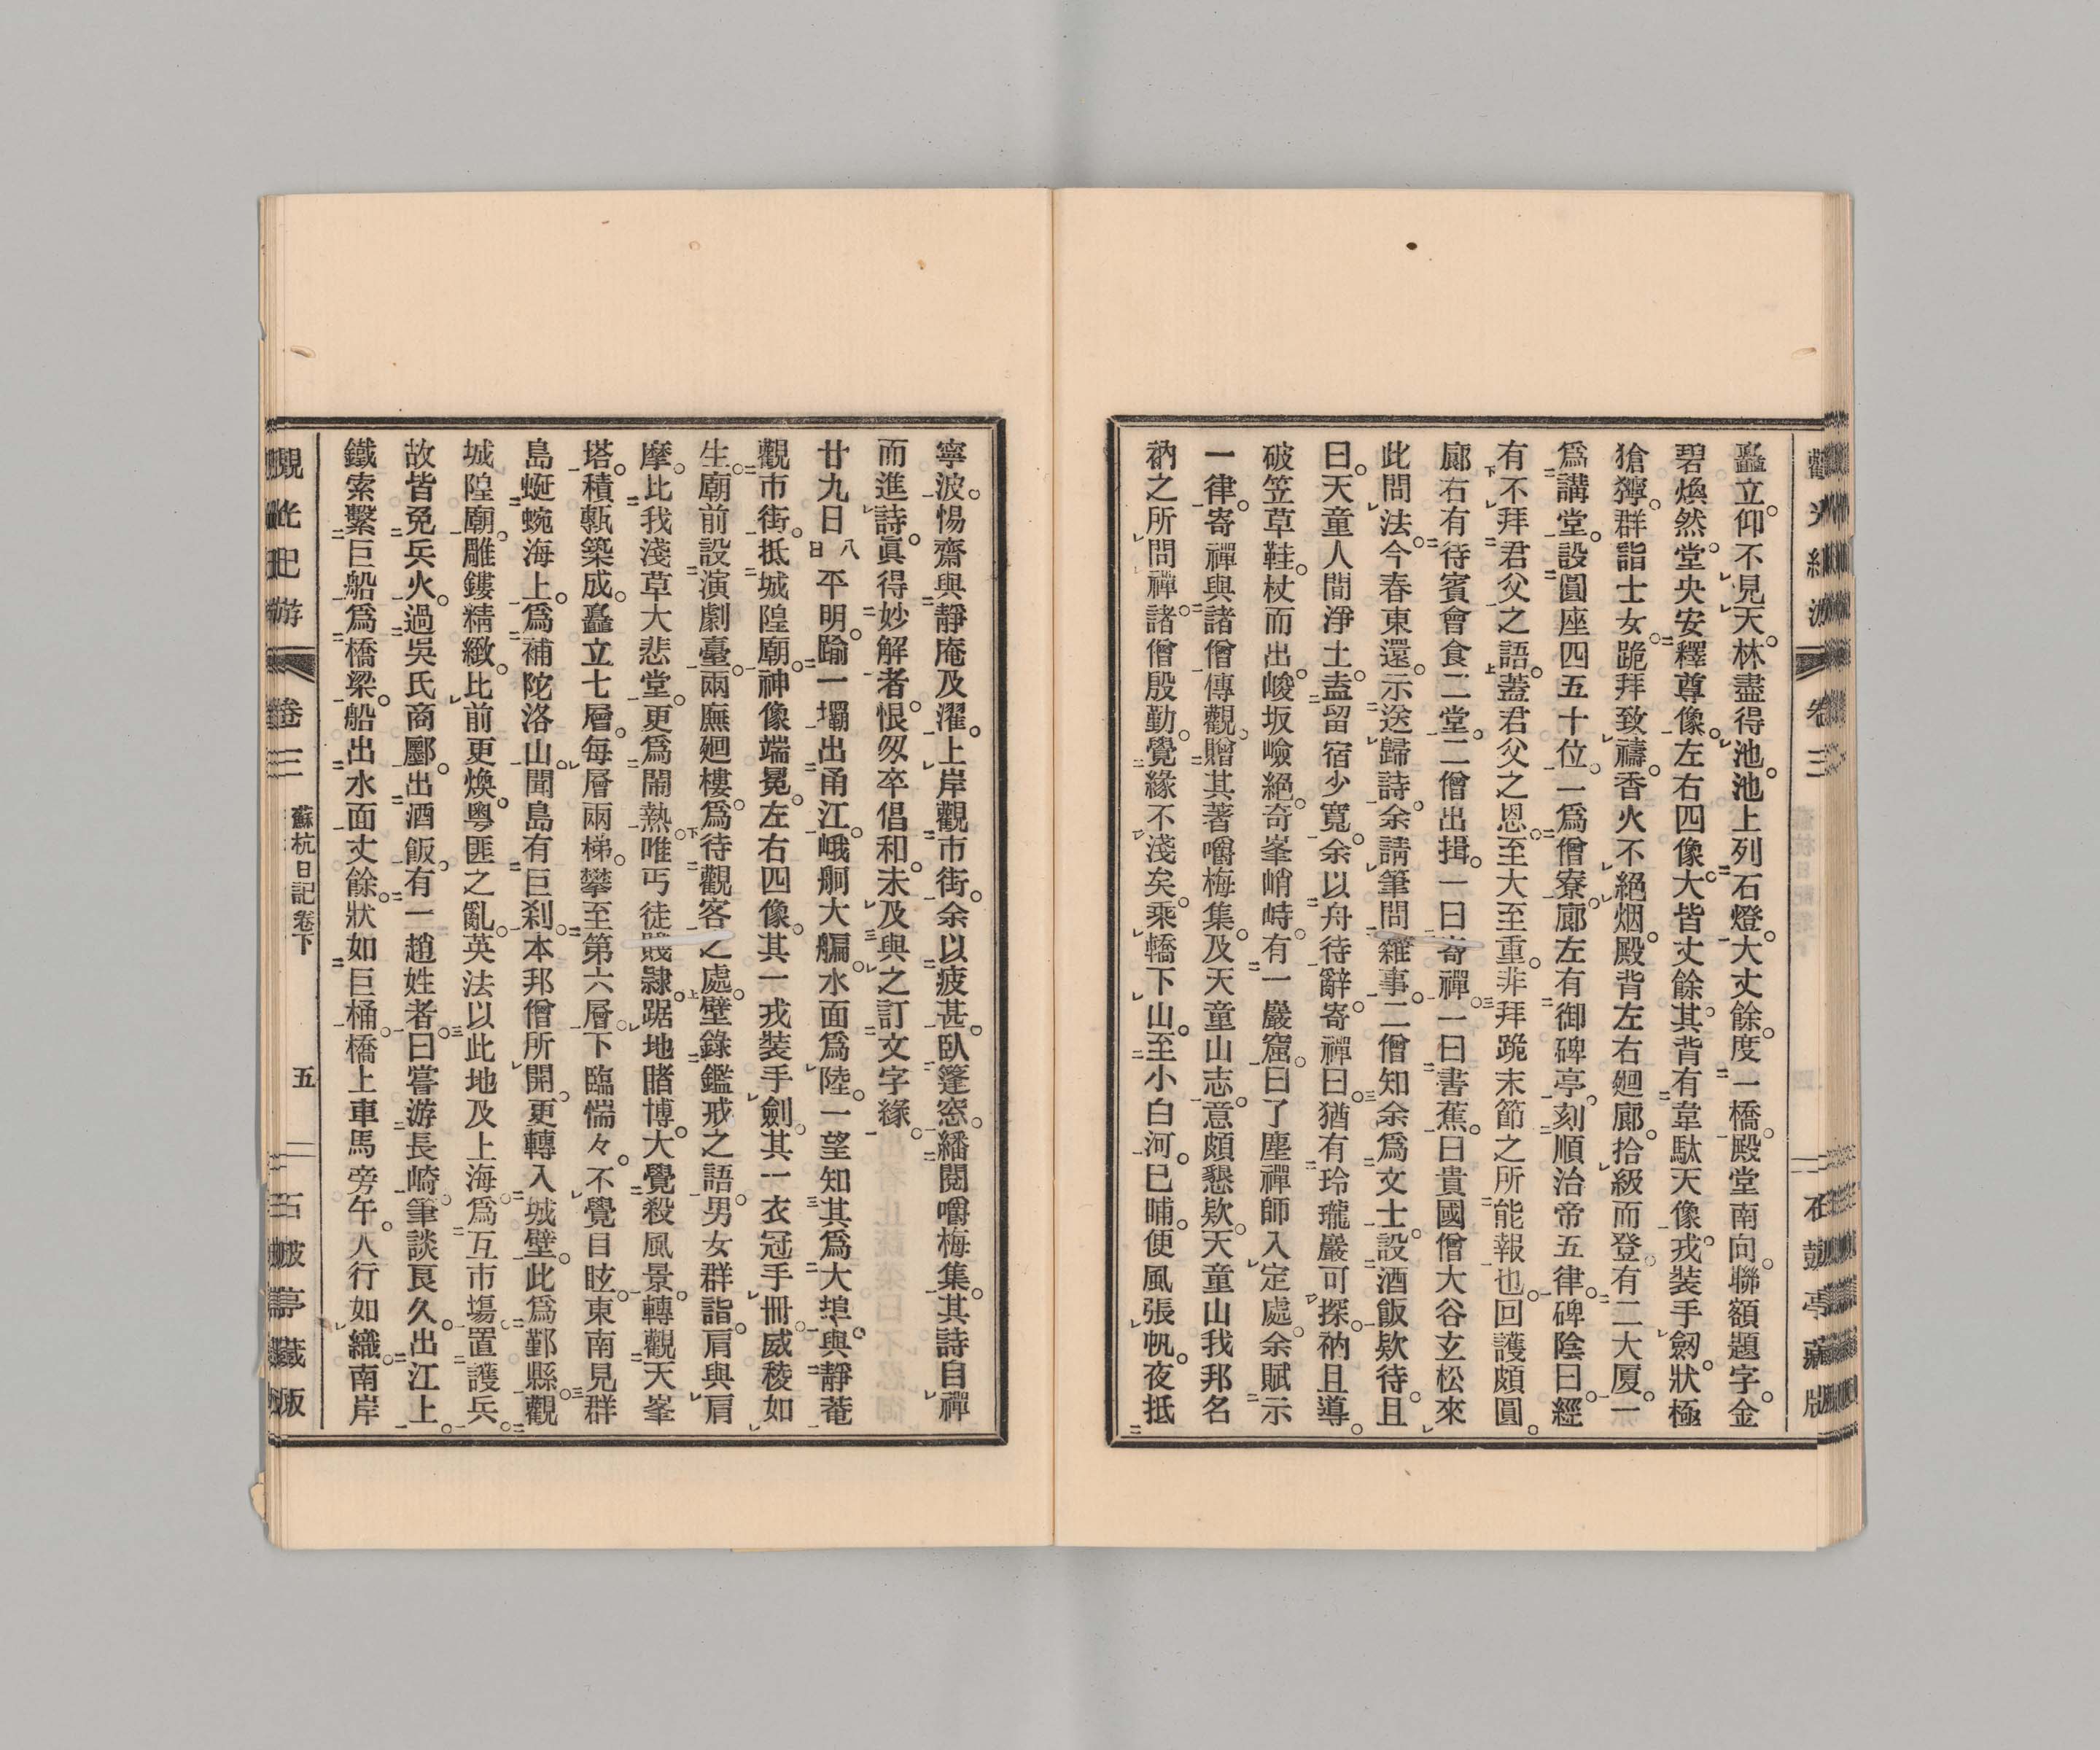 矗立。仰不見天。林盡得池。池上列石燈。大丈餘。度一橋。殿堂南向。聯額題字。金
碧煥然。堂央安釋尊像。左右四像。大皆丈餘。其背有韋馱天像。戎裝手劔。狀極
獊獰。群詣士女。跪拜致禱。香火不絕烟。殿背左右廻廊。拾級而登。有二大厦。一
爲講堂。設圓座四五十位。一爲僧寮。廊左有御碑亭。刻順治帝五律。碑陰曰。經
有不拜君父之語。蓋君父之恩。至大至重。非拜跪末節之所能報也。回護頗圓。
廊右有待賓會食二堂。二僧出揖。一曰寄禪。一曰書蕉。曰貴國僧大谷玄松來
此問法。今春東還。示送歸詩。余請筆問雜事。二僧知余爲文士。設酒飯欵待。且
曰。天童人間淨土。盍留宿少寬。余以舟待辭。寄禪曰。猶有玲瓏巖可探。衲且導。
破笠草鞋。杖而出。峻坂嶮絕。奇峯峭峙。有一巖窟。曰了塵禪師入定處。余賦示
一律。寄禪與諸僧傳觀。贈其著嚼梅集。及天童山志。意頗懇欵。天童山我邦名
衲之所問禪。諸僧殷勤。覺緣不淺矣。乘轎下山。至小白河。已晡。便風張帆。夜抵
寧波。惕齋與靜庵及濯。上岸觀市街。余以疲甚。臥篷窓。繙閱嚼梅集。其詩自禪
而進詩。眞得妙解者。恨匆卒倡和。未及與之訂文字緣。
廿九日八日平明。踰一壩出甬江。峨舸大艑。水面爲陸。一望知其爲大埠。與靜菴
觀市街。抵城隍廟。神像端冕。左右四像。其一戎裝手劍。其一衣冠手冊。威稜如
生。廟前設演劇臺。兩廡廻樓。爲待觀客之處。壁錄鑑戒之語。男女群詣。肩與肩
摩。比我淺草大悲堂。更爲鬧熱。唯丐徒賤隷。踞地賭博。大覺殺風景。轉觀天峯
塔。積甎築成。矗立七層。每層兩梯。攀至第六層。下臨惴々。不覺目眩。東南見群
島蜒蜿海上。爲補陀洛山。聞島有巨刹。本邦僧所開。更轉入城壁。此爲鄞縣。觀
城隍廟。雕鏤精緻。比前更煥。粤匪之亂。英法以此地及上海爲互市場。置護兵。
故皆免兵火。過吳氏商郾。出酒飯。有一趙姓者。曰嘗游長崎。筆談良久。出江上。
鐵索繫巨船爲橋梁。船出水面丈餘。狀如巨桶。橋上車馬旁午。人行如織。南岸
觀光紀游 卷三 蘇杭日記卷下 五 石鼓亭藏版